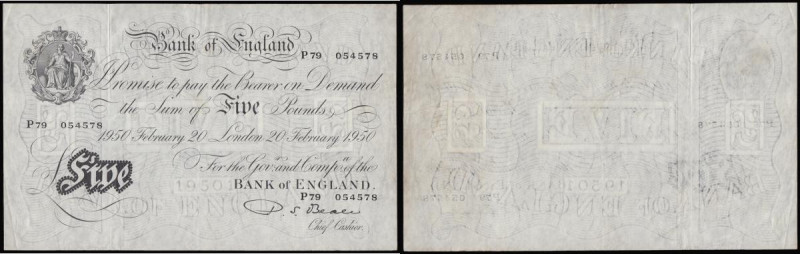 Bank of England
P79 054578
Promise to pay the Bearer on Demand
the Sum of Five Pounds
P79 054578
1950 February 20 London 20 February 1950
For the Gov.r and Comp.a of the
Five
BANK OF ENGLAND.
P79 054578
P. S. Beale
Chief Cashier.